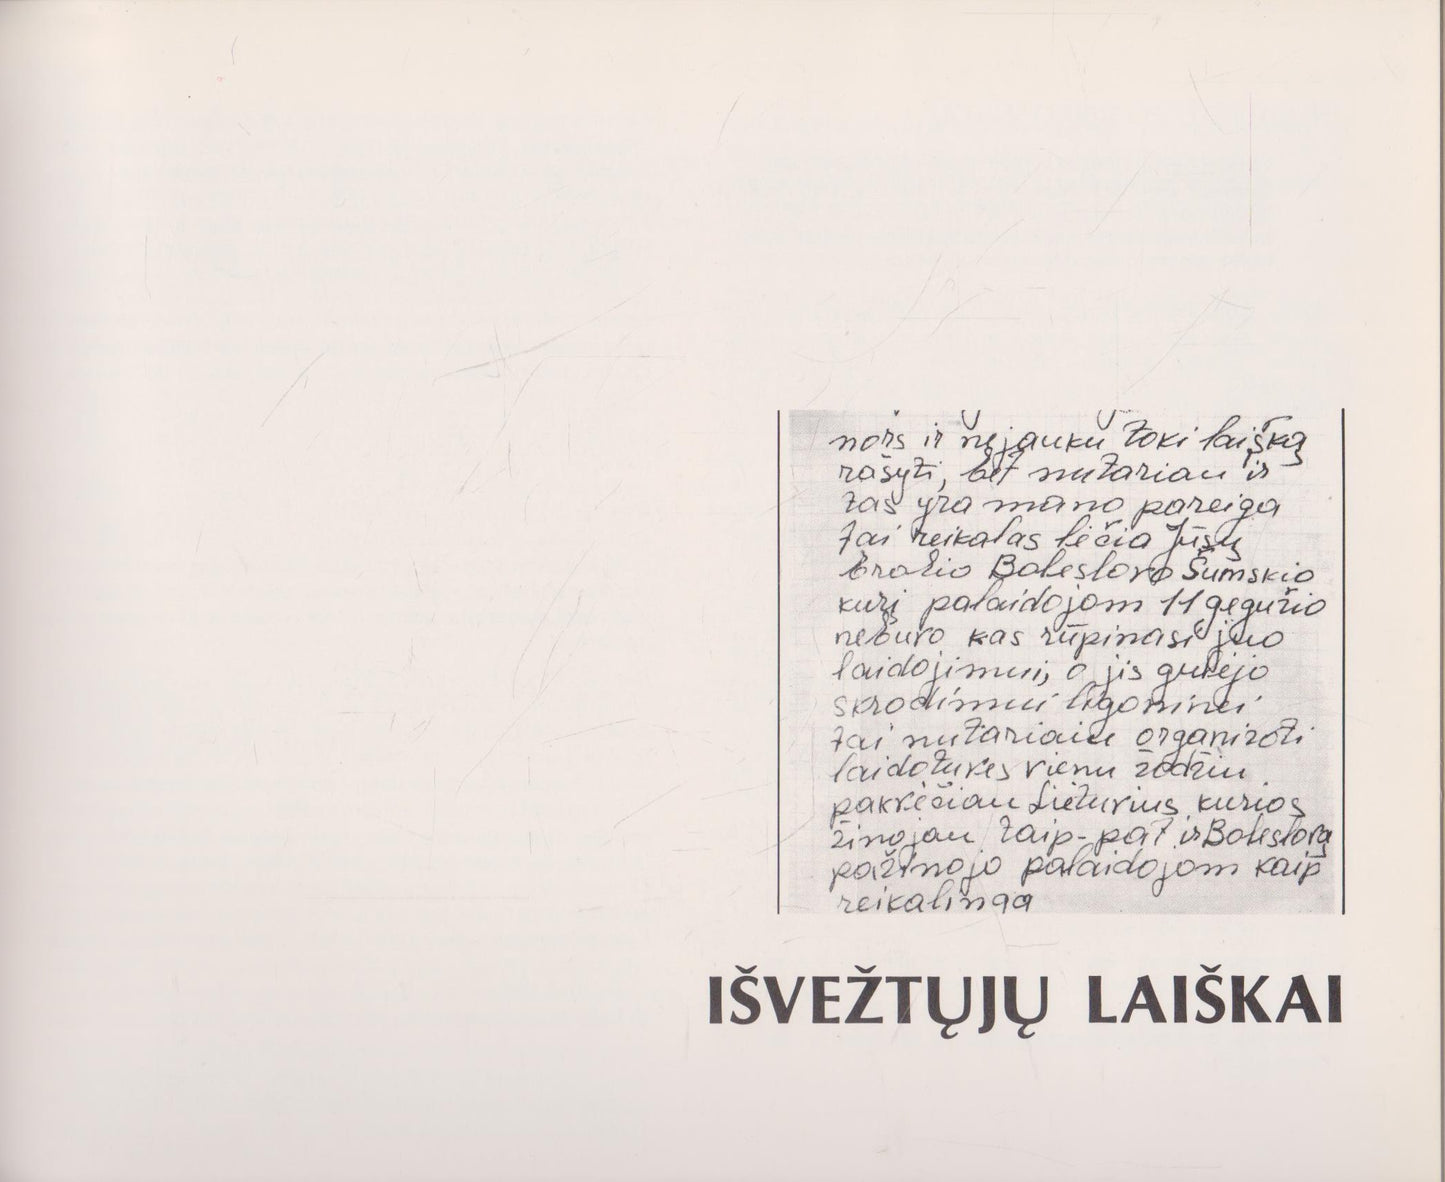 nors ir nejauku toki laišką
rašyti, bet nutariau ir
tas yra mano pareiga
tai reikalas lėčia Jūsų
brolio Boleslovo Šumskio
kurį palaidojom 11 gegužio
nebuvo kas rūpinasi juo
laidojimui, o jis gulėjo
skrodimui ligoninei
tai nutariau organizoti
laidotuves vienu žodžiu
pakvėčiau Lietuvius kurios
žinojau taip-pat ir Boleslovą
pažinojo palaidojom kaip
reikalinga
IŠVEŽTŲJŲ LAIŠKAI